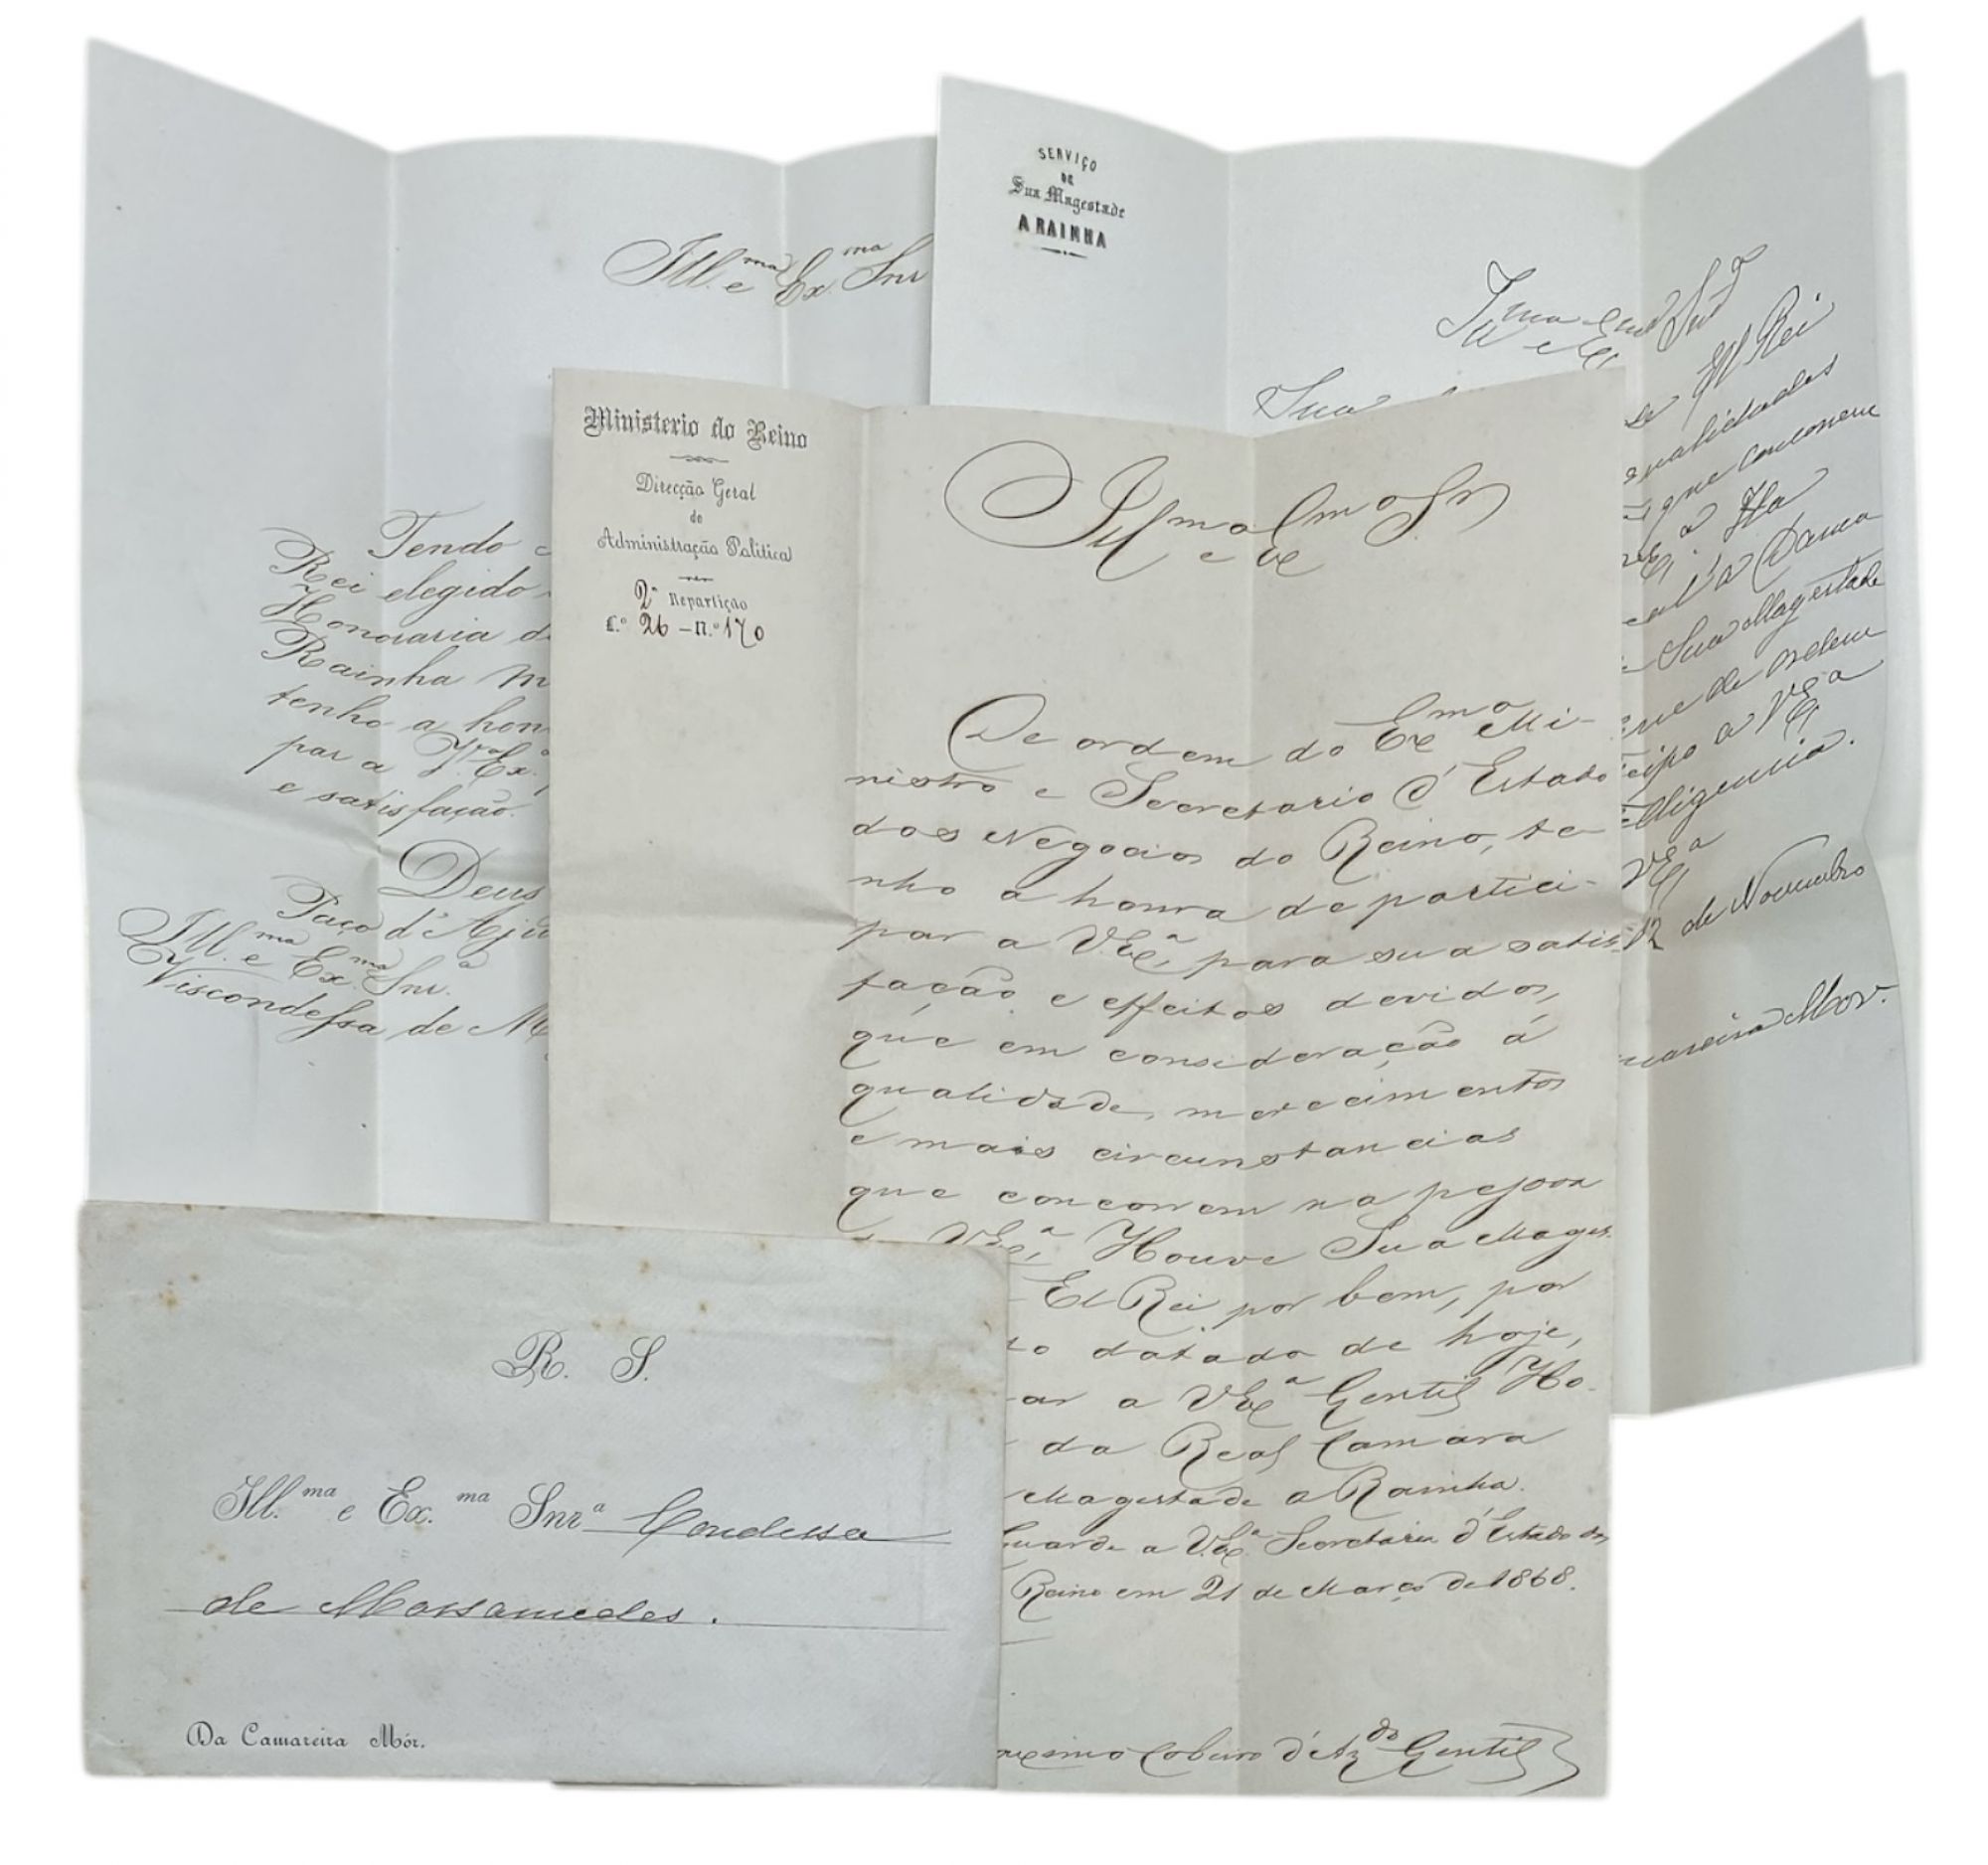 Ill.ma e Ex.ma Snr
Tendo
Rei elegido
Honoraria d
Rainha
tenho a hon
par a V. Ex.a
e satisfação.
Deus
Paço d'Aju
Ill.ma e Ex.ma Snr.a
Viscondessa de M
SERVIÇO
DE
Sua Magestade
A RAINHA
Sua
El Rei
qualidades
que concorrem
Dama
Sua Magestade
que de ordem
cipo a V Ex.a
telligencia.
V Ex.a
12 de Novembro
mareira Mor.
Ministerio do Reino
Direcção Geral
de
Administração Politica
2ª Repartição
L.º 26 – N.º 170
Ill.mo e Ex.mo Sr
De ordem do Ex.mo Mi-
nistro e Secretario d'Estado
dos Negocios do Reino, te-
nho a honra de partici-
par a V.Ex.a, para sua satis-
fação e effeitos devidos,
que em consideração á
qualidade, merecimentos
e mais circunstancias
que concorrem na pessoa
V.Ex.a, Houve Sua Mages
El Rei por bem, por
to datado de hoje,
ar a V.Ex.a Gentil Ho-
da Real Camara
Magestade a Rainha.
Guarde a V.Ex.a Secretaria d'Estado dos
Reino em 21 de Março de 1868.
d'Az.do Gentil
R. S.
Ill.ma e Ex.ma Snr.a Condessa
de Mossamedes.
Da Camareira Mór.